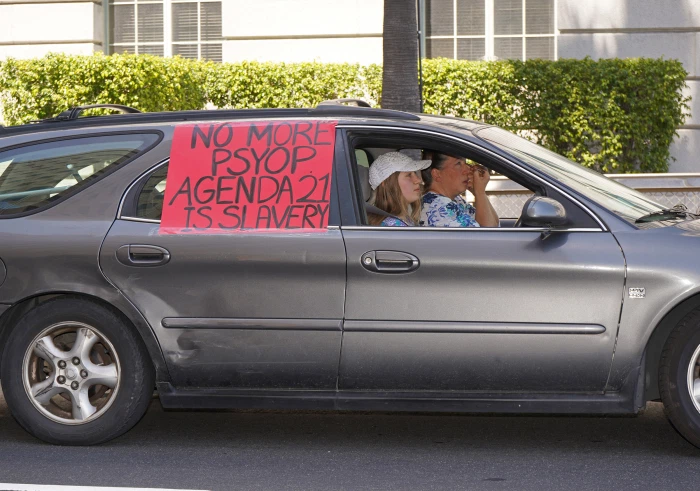 NO MORE
PSYOP
AGENDA 21
IS SLAVERY